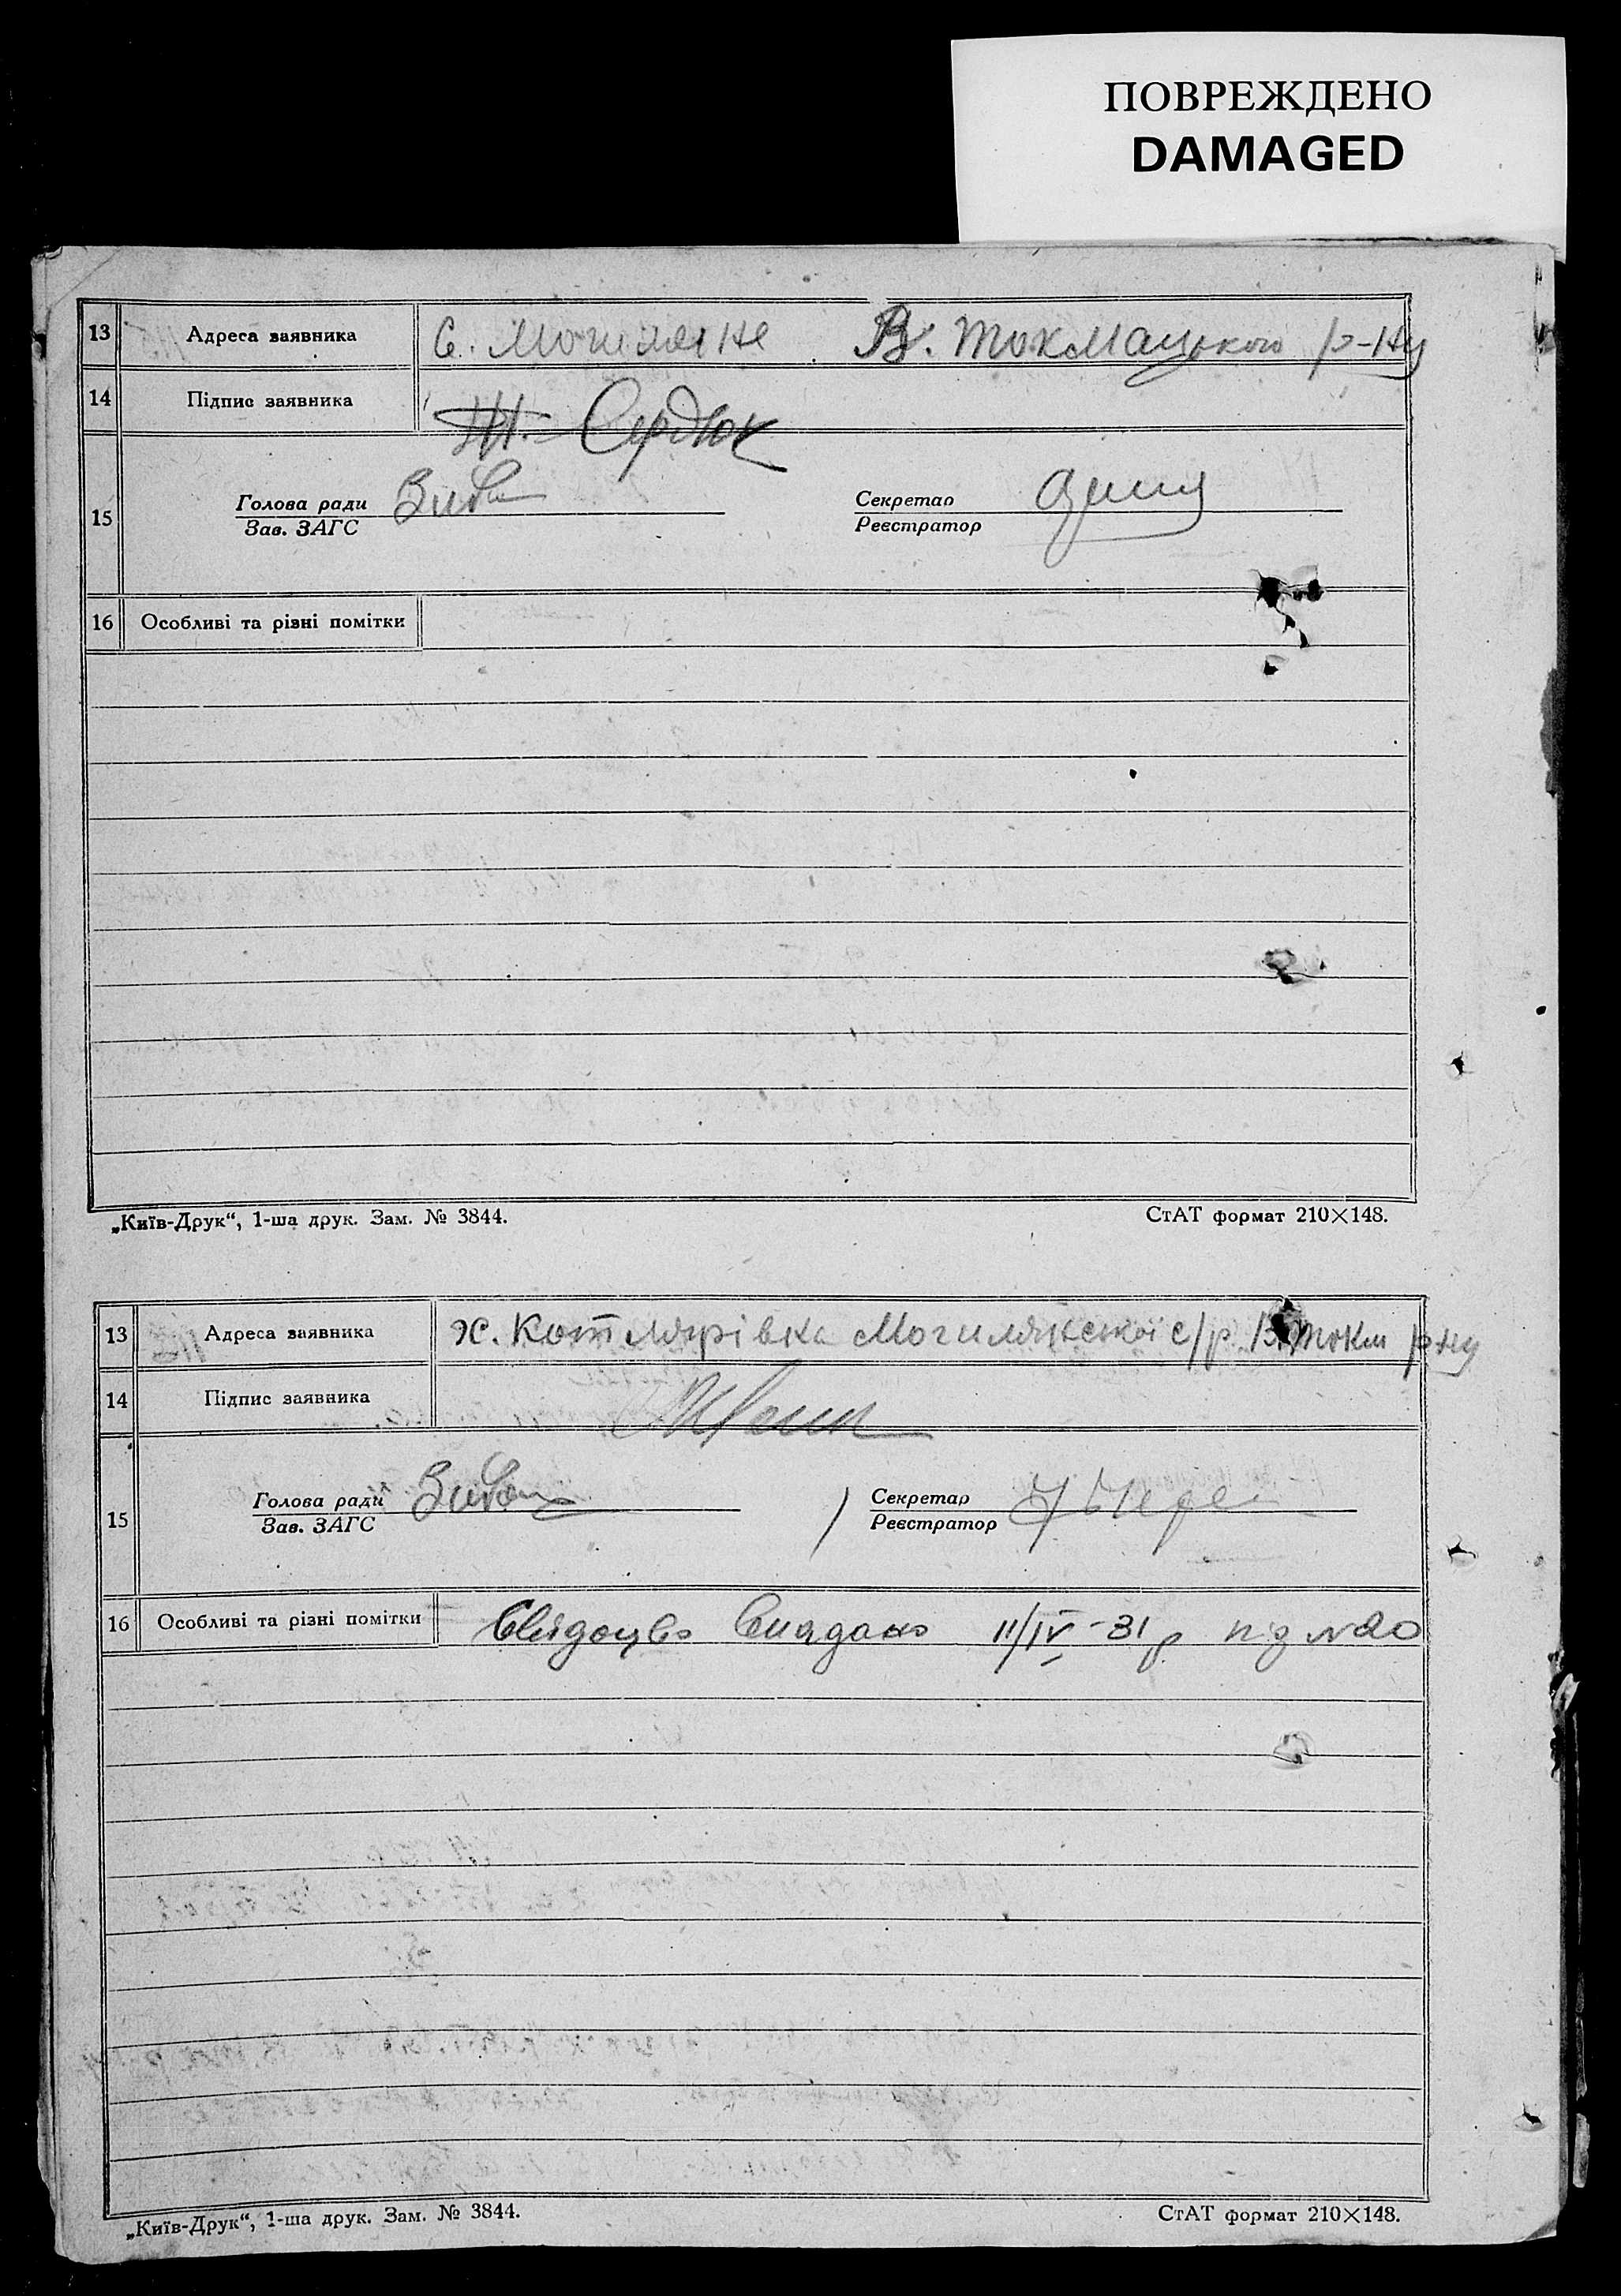 ПОВРЕЖДЕНО
DAMAGED
13 Адреса заявника С. Могиляне В. Токмацького р-ну
14 Підпис заявника Сердюк
15 Голова ради Секретар
Зав. ЗАГС Реєстратор
16 Особливі та різні помітки
„Київ-Друк“, 1-ша друк. Зам. № 3844. СтАТ формат 210×148.
13 Адреса заявника х. Котлярівка Могилянської с/р В. Токм р-ну
14 Підпис заявника
15 Голова ради Секретар
Зав. ЗАГС Реєстратор
16 Особливі та різні помітки 11/IV-31р під №20
„Київ-Друк“, 1-ша друк. Зам. № 3844. СтАТ формат 210×148.